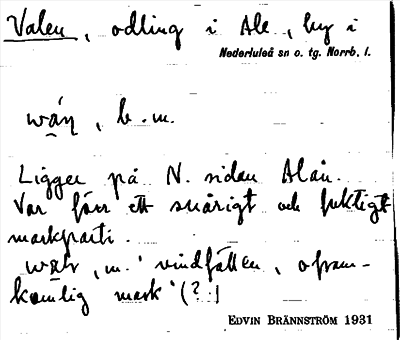 Valen, odling i Ale, by i
Nederluleå sn o. tg. Norrb. l.
b. m.
Ligger på N. sidan Aleån.
Var förr ett snårigt och fuktigt
markparti.
m. 'vindfällen, ofram-
komlig mark' (?)
EDVIN BRÄNNSTRÖM 1931